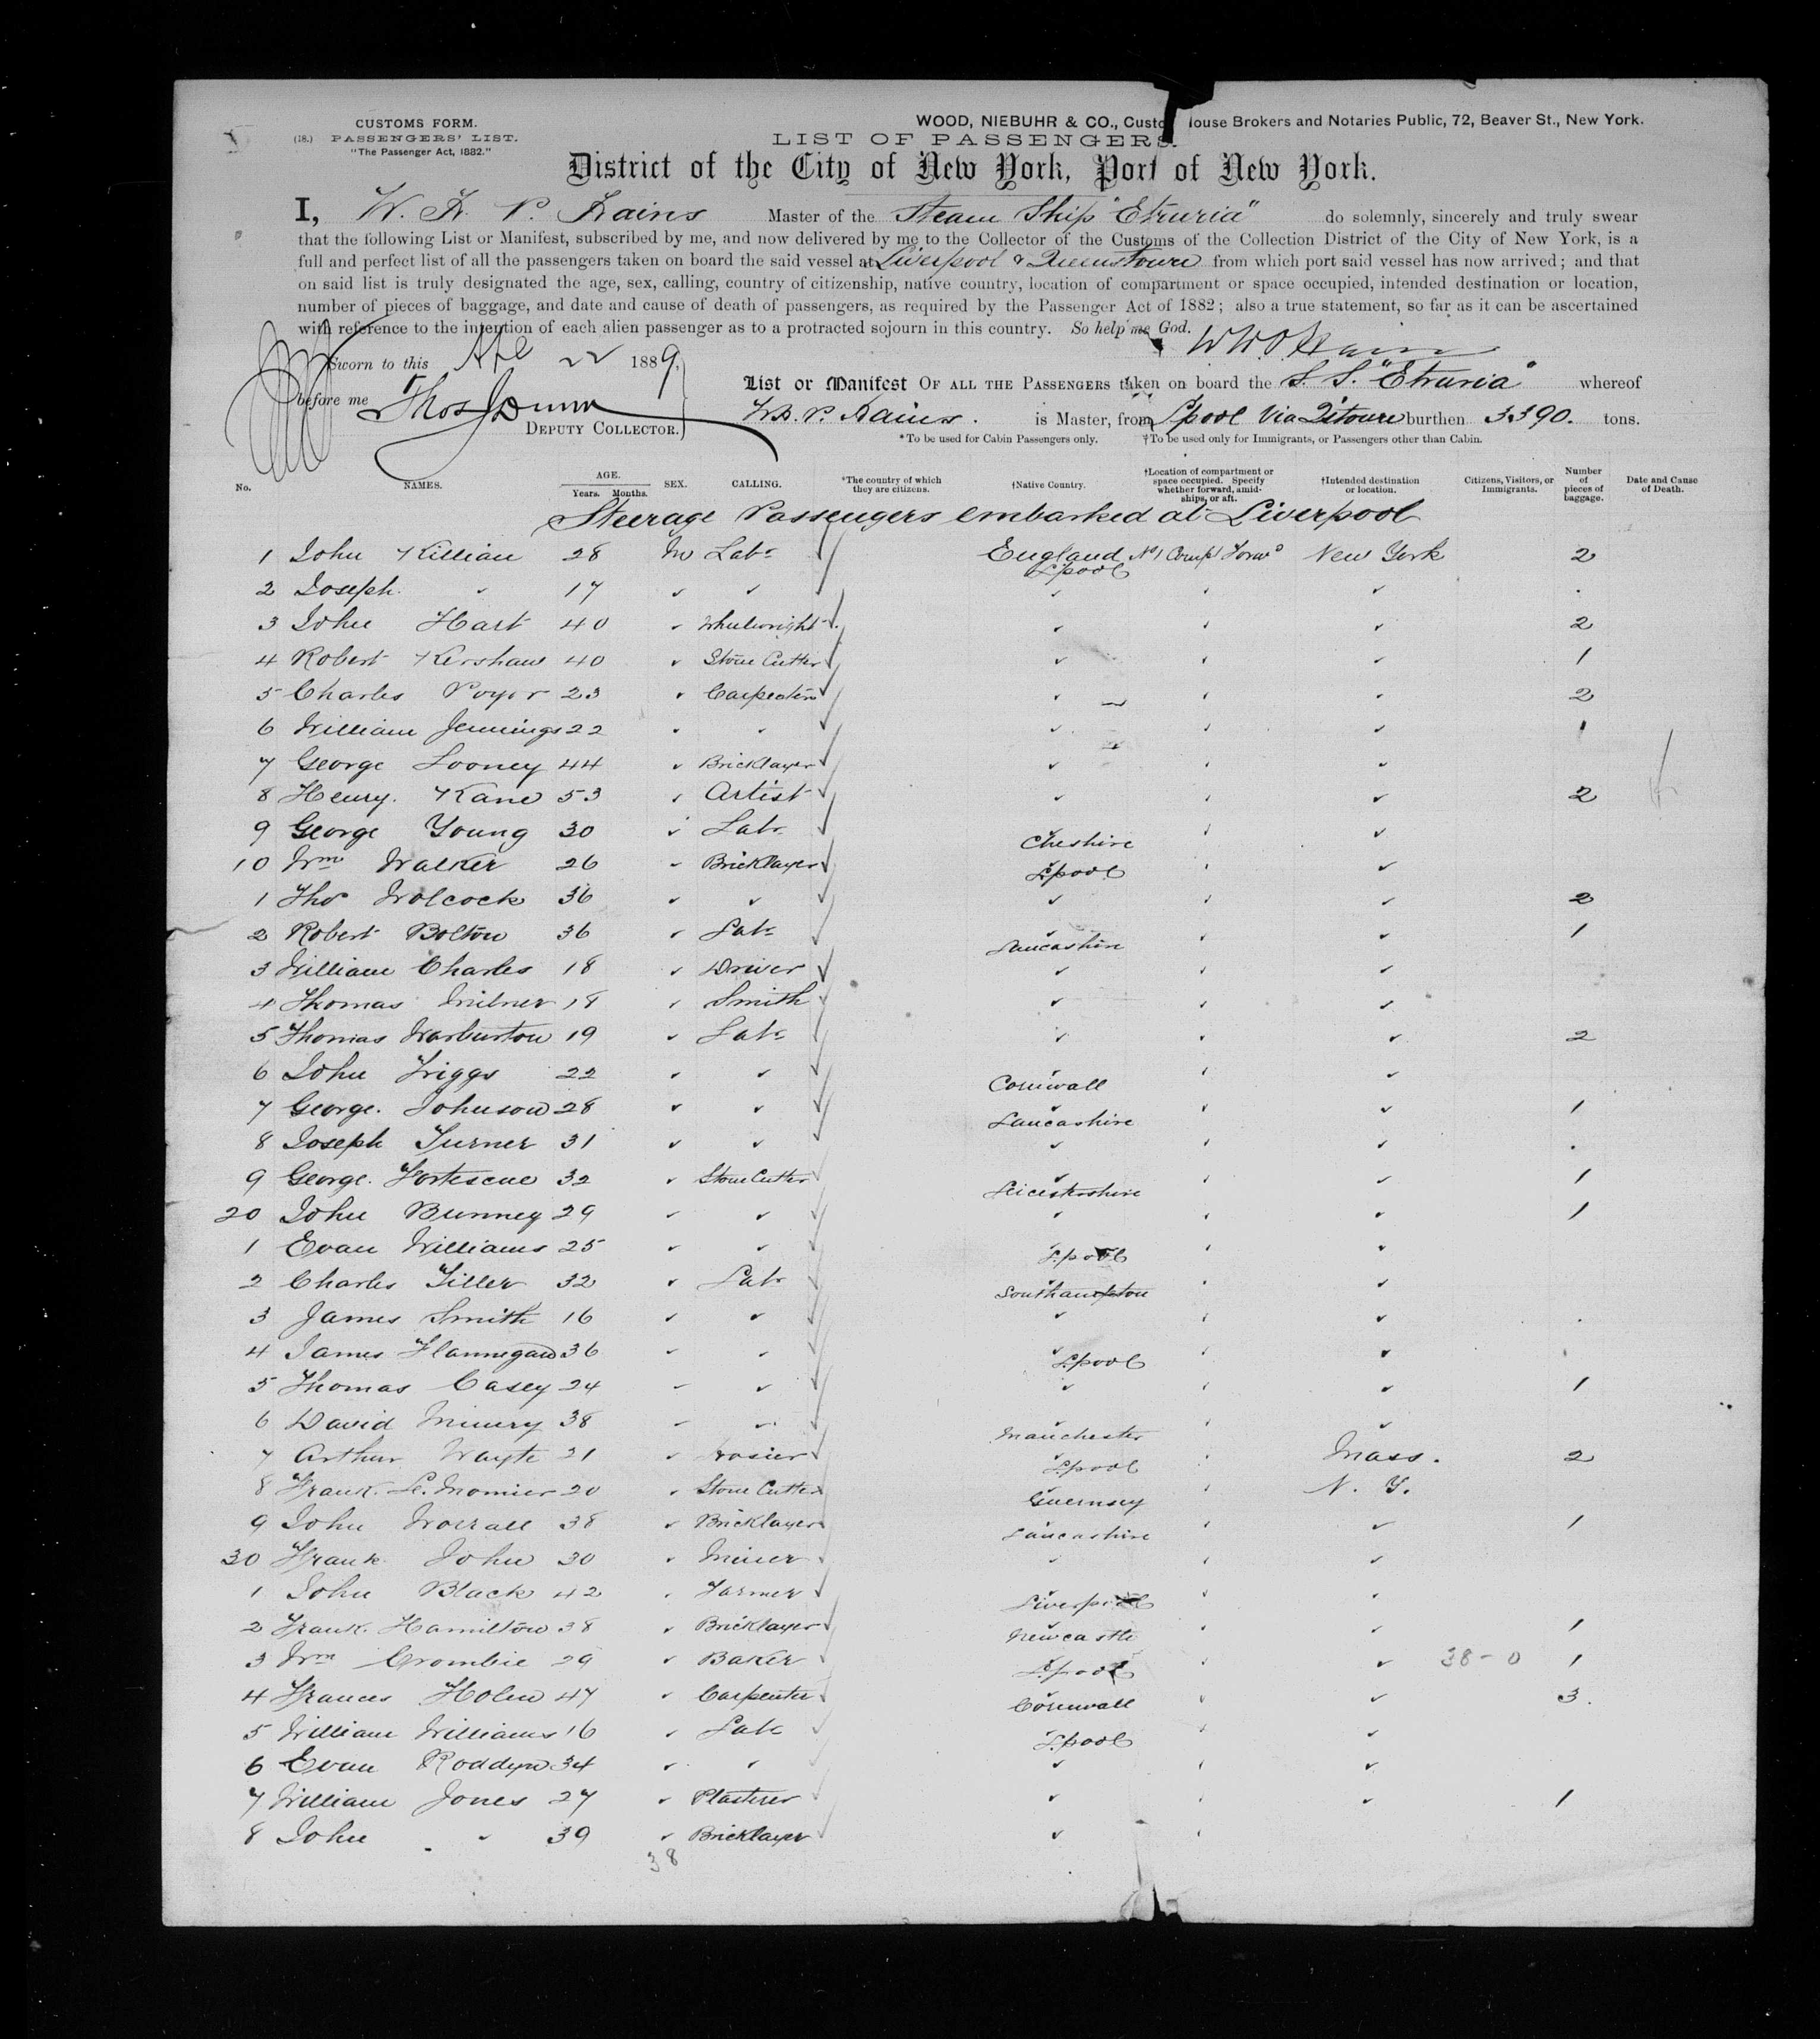 CUSTOMS FORM.
(18.) PASSENGERS' LIST.
"The Passenger Act, 1882."
WOOD, NIEBUHR & CO., Custo House Brokers and Notaries Public, 72, Beaver St., New York.
LIST OF PASSENGERS.
District of the City of New York, Port of New York.
I, W. H. P. Hains Master of the Steam Ship "Etruria" do solemnly, sincerely and truly swear
that the following List or Manifest, subscribed by me, and now delivered by me to the Collector of the Customs of the Collection District of the City of New York, is a
full and perfect list of all the passengers taken on board the said vessel at Liverpool & Queenstown from which port said vessel has now arrived; and that
on said list is truly designated the age, sex, calling, country of citizenship, native country, location of compartment or space occupied, intended destination or location,
number of pieces of baggage, and date and cause of death of passengers, as required by the Passenger Act of 1882; also a true statement, so far as it can be ascertained
with reference to the intention of each alien passenger as to a protracted sojourn in this country. So help me God.
Sworn to this 22 1889.
before me Thos Dunn
DEPUTY COLLECTOR.
List or Manifest OF ALL THE PASSENGERS taken on board the S. S. "Etruria" whereof
W.H.P. Hains. is Master, from Lpool Via Qtown burthen 3390. tons.
*To be used for Cabin Passengers only. †To be used only for Immigrants, or Passengers other than Cabin.
No. NAMES. AGE. Years. Months. SEX. CALLING. *The country of which they are citizens. †Native Country. †Location of compartment or space occupied. Specify whether forward, amidships, or aft. †Intended destination or location. Citizens, Visitors, or Immigrants. Number of pieces of baggage. Date and Cause of Death.
Steerage Passengers embarked at Liverpool
1 John Killian 28 M Labr England Lpool No 1 Compt Forwd New York 2
2 Joseph " 17
3 John Hart 40 Wheelwright 2
4 Robert Kershaw 40 Stone Cutter 1
5 Charles Poyer 23 Carpenter 2
6 William Jennings 22 1
7 George Looney 44 Bricklayer
8 Henry. Kane 53 Artist 2
9 George Young 30 Labr Cheshire
10 Wm Walker 26 Bricklayer Lpool
1 Tho Wolcock 36 2
2 Robert Bolton 36 Labr Lancashire 1
3 William Charles 18 Driver
4 Thomas Milner 18 Smith
5 Thomas Warburton 19 Labr 2
6 John Triggs 22 Cornwall
7 George. Johnson 28 Lancashire 1
8 Joseph Turner 31
9 George. Fortescue 32 Stone Cutter Leicestershire 1
20 John Bunney 29 1
1 Evan Williams 25 Lpool
2 Charles Tiller 32 Labr Southampton
3 James Smith 16
4 James Flannegan 36 Lpool
5 Thomas Casey 24 1
6 David 38 Manchester
7 Arthur Wayte 21 Lpool Mass. 2
8 Frank. 20 Stone Cutter Guernsey N. Y.
9 John Worrall 38 Bricklayer Lancashire 1
30 Frank John 30 Miner
1 John Black 42 Farmer Liverpool
2 Frank. Hamilton 38 Bricklayer Newcastle 1
3 Wm Crombie 29 Baker Lpool 38-0 1
4 Frances 47 Carpenter Cornwall 3.
5 William Williams 16 Labr Lpool
6 Evan Roddyn 34
7 William Jones 27 Plasterer 1
8 John " 39 Bricklayer
38